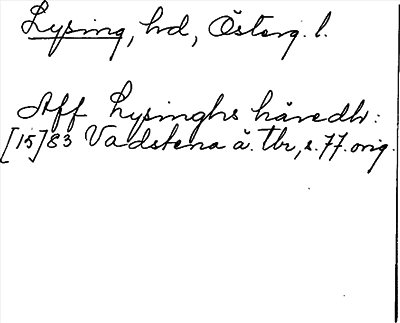 Lysing, hd, Österg. l.
Aff Lysinghs häredh:
[15]83 Vadstena ä. Tbr, s. 77. orig.